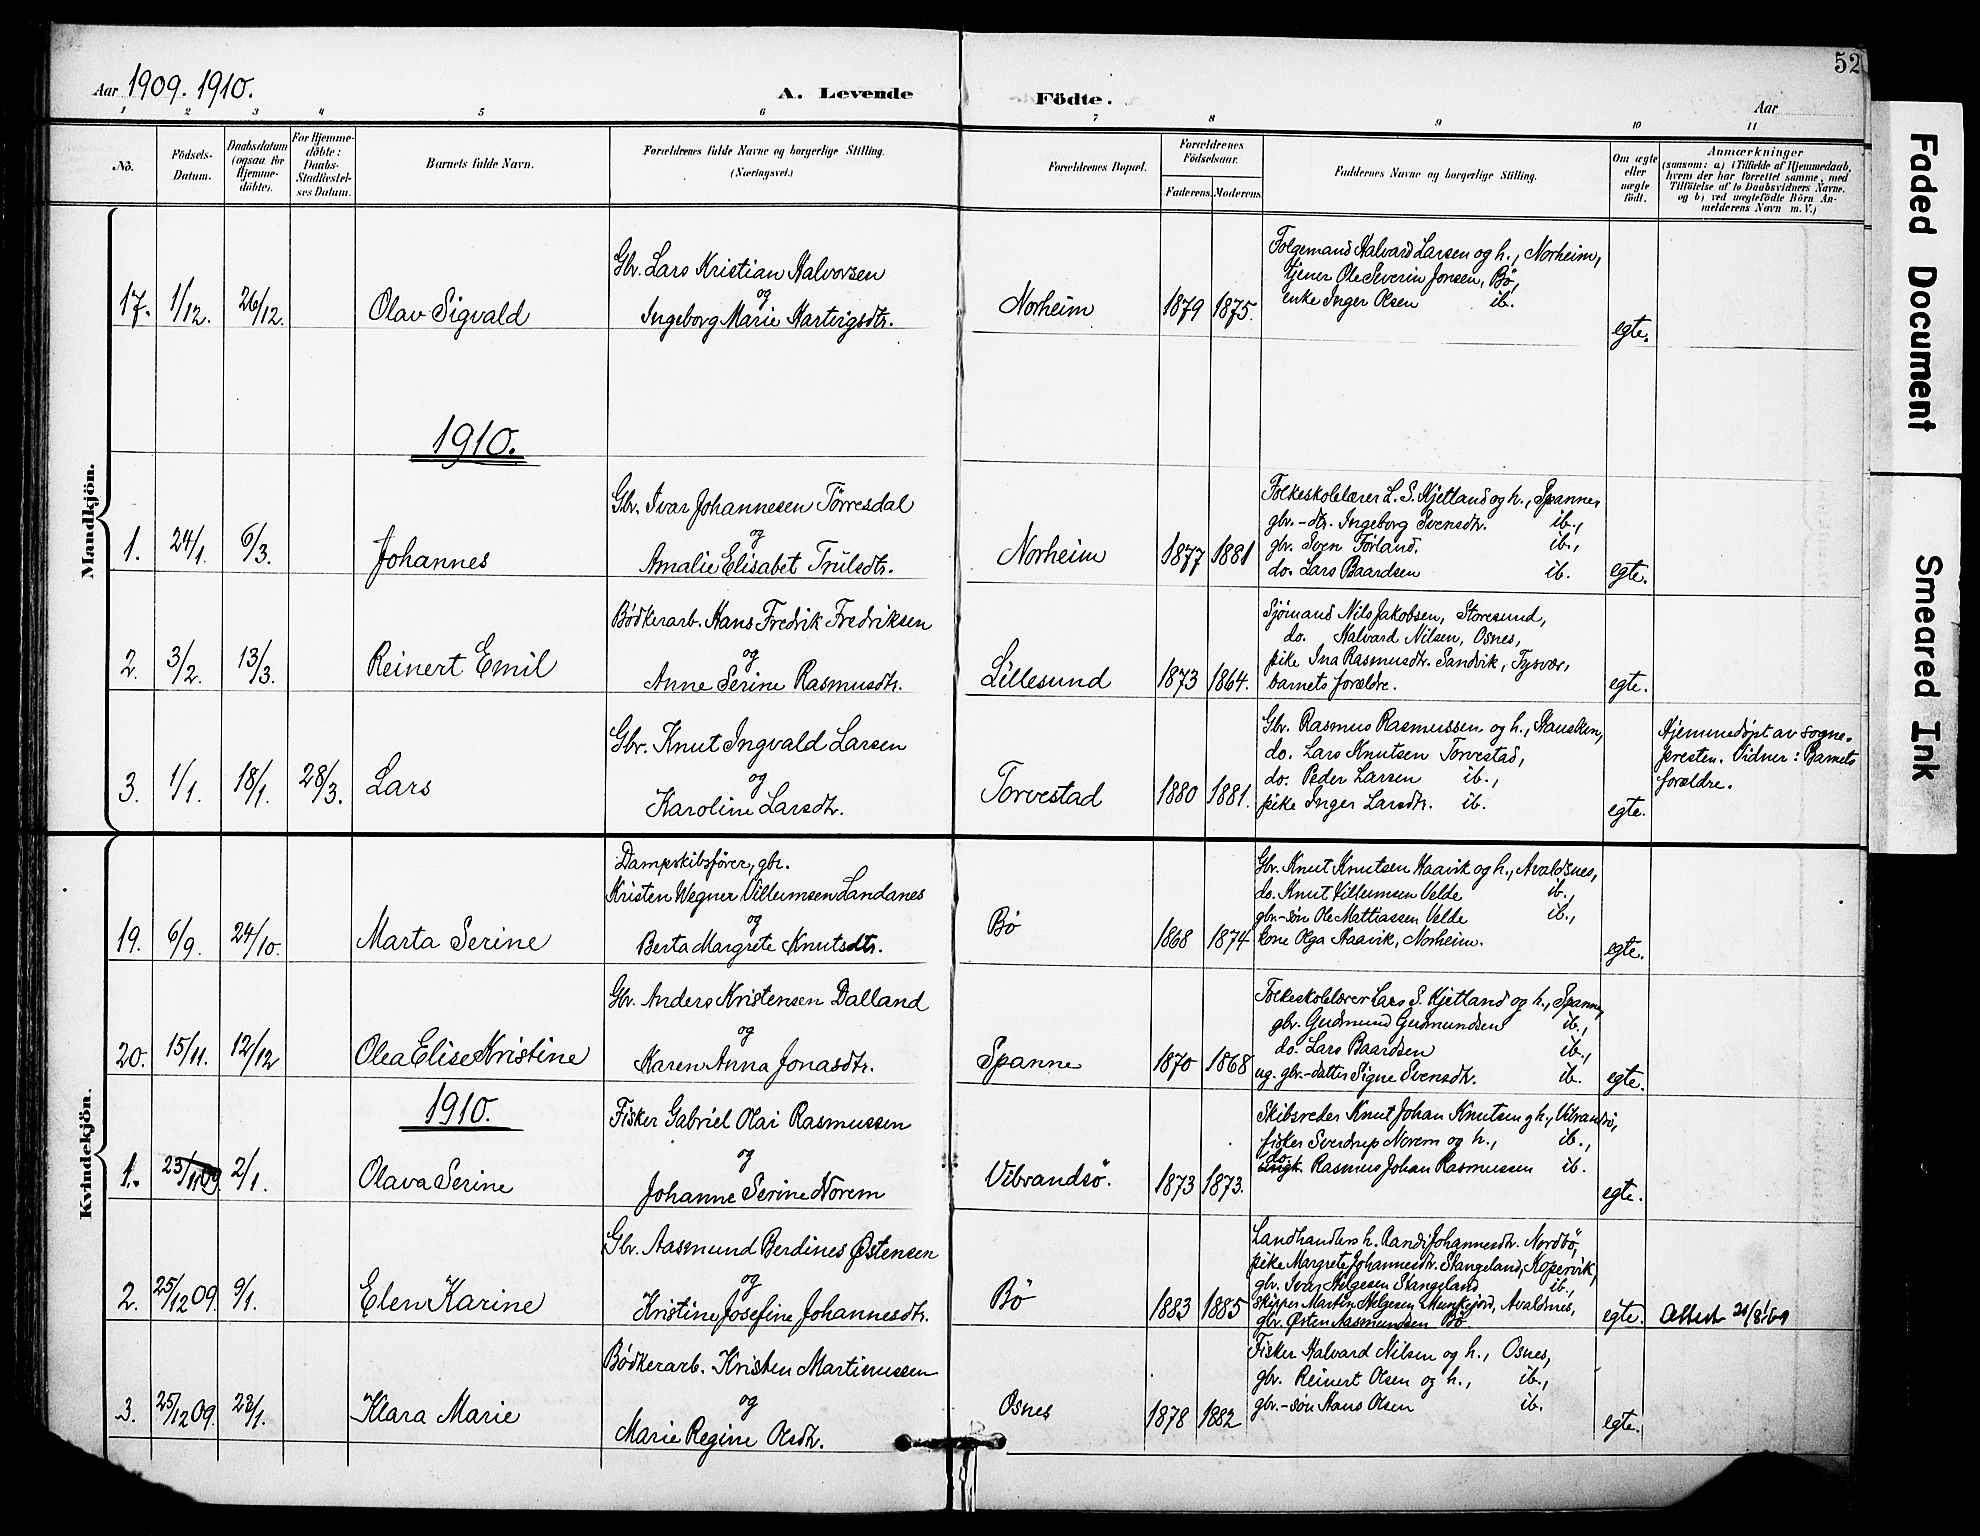 52
Aar 1909. 1910.
A. Levende Födte.
Aar
1 2 3 4 5 6 7 8 9 10 11
No.
Födsels-
Datum.
Daabsdatum
(ogsaa for
Hjemme-
döbte).
For Hjemme-
döbte:
Daabs-
Stadfæstel-
ses Datum.
Barnets fulde Navn.
Forældrenes fulde Navne og borgerlige Stilling.
(Næringsvei.)
Forældrenes Bopæl.
Forældrenes
Födselsaar.
Faderens. Moderens.
Faddernes Navne og borgerlige Stilling.
Om ægte
eller
uægte
födt.
Anmærkninger
(saasom: a) i Tilfælde af Hjemmedaab,
hvem der har forrettet samme, med
Tilföielse af to Daabsvidners Navne.
og b) ved uægtefödte Börn An-
melderens Navn m. V.)
Mandkjön.
17. 1/12. 26/12. Olav Sigvald
Gbr. Lars Kristian Halvorsen
og
Ingeborg Marie Hartvigsdtr.
Norheim 1879 1875.
Folgemand Halvard Larsen og h., Norheim,
tjener Ole Severin Jonsen, Bö,
enke Inger Olsen ib.
egte.
1910.
1. 24/1. 6/3. Johannes
Gbr. Ivar Johannesen Törresdal
og
Amalie Elisabet Trulsdtr.
Norheim 1877 1881
Folkeskolelærer L. S. Kjetland og h., Spanne,
gbr.-dtr. Ingeborg Svensdtr. ib.,
gbr. Sven Förland, ib.,
do. Lars Baardsen ib.
egte.
2. 3/2. 13/3. Reinert Emil
Bödkerarb. Hans Fredrik Fredriksen
og
Anne Serine Rasmusdtr.
Lillesund 1873 1864.
Sjömand Nils Jakobsen, Storesund,
do. Halvard Nilsen, Osnes,
pike Ina Rasmusdtr. Sandvik, Tysvær,
barnets forældre.
egte.
3. 1/1. 18/1. 28/3. Lars
Gbr. Knut Ingvald Larsen
og
Karoline Larsdtr.
Torvestad 1880 1881.
Gbr. Rasmus Rasmussen og h.,
do. Lars Knutsen Torvestad,
do. Peder Larsen ib.,
pike Inger Larsdtr. ib.
egte.
Hjemmedöpt av sogne-
presten. Vidner: Barnets
forældre.
Kvindekjön.
19. 6/9. 24/10. Marta Serine
Dampskibsförer, gbr.
Kristen Wegner Villumsen Landanes
og
Berta Margrete Knutsdtr.
Bö 1868 1874
Gbr. Knut Knutsen Haavik og h., Avaldsnes,
do. Knut Villumsen Velde ib.,
gbr.-sön Ole Mattiassen Velde ib.,
kone Olga Haavik, Norheim.
egte.
20. 15/11. 12/12 Olea Elise Kristine
Gbr. Anders Kristensen Dalland
og
Karen Anna Jonasdtr.
Spanne 1870 1868
Folkeskolelærer Lars S. Kjetland og h., Spanne,
gbr. Gudmund Gudmundsen ib.,
do. Lars Baardsen ib.,
ug. gbr.-datter Signe Svensdtr. ib.
egte.
1910.
1. 23/11 09 2/1. Olava Serine
Fisker Gabriel Olai Rasmussen
og
Johanne Serine Norem
Vibrandsö. 1873 1873.
Skibsreder Knut Johan Knutsen og h., Vibrandsö,
fisker Sverdrup Norem og h., ib.,
do. Rasmus Johan Rasmussen ib.
egte.
2. 25/12 09. 9/1. Elen Karine
Gbr. Aasmund Berdines Østensen
og
Kristine Josefine Johannesdtr.
Bö 1883 1885
Landhandlers h. Randi Johannesdtr. Nordbö,
pike Margrete Johannesdtr. Stangeland, Kopervik,
gbr. Ivar Helgesen Stangeland ib.,
skipper Martin Helgesen Munkejord, Avaldsnes,
gbr. Østen Aasmundsen Bö.
egte.
Attest 21/8-69
3. 25/12 09. 23/1. Klara Marie
Bödkerarb. Kristen Martinussen
og
Marie Regine Olsdtr.
Osnes 1878 1882
Fisker Halvard Nilsen og h., Osnes,
gbr. Reinert Olsen og h., ib.,
gbr.-sön Hans Olsen ib.
egte.
Faded Document
Smeared Ink